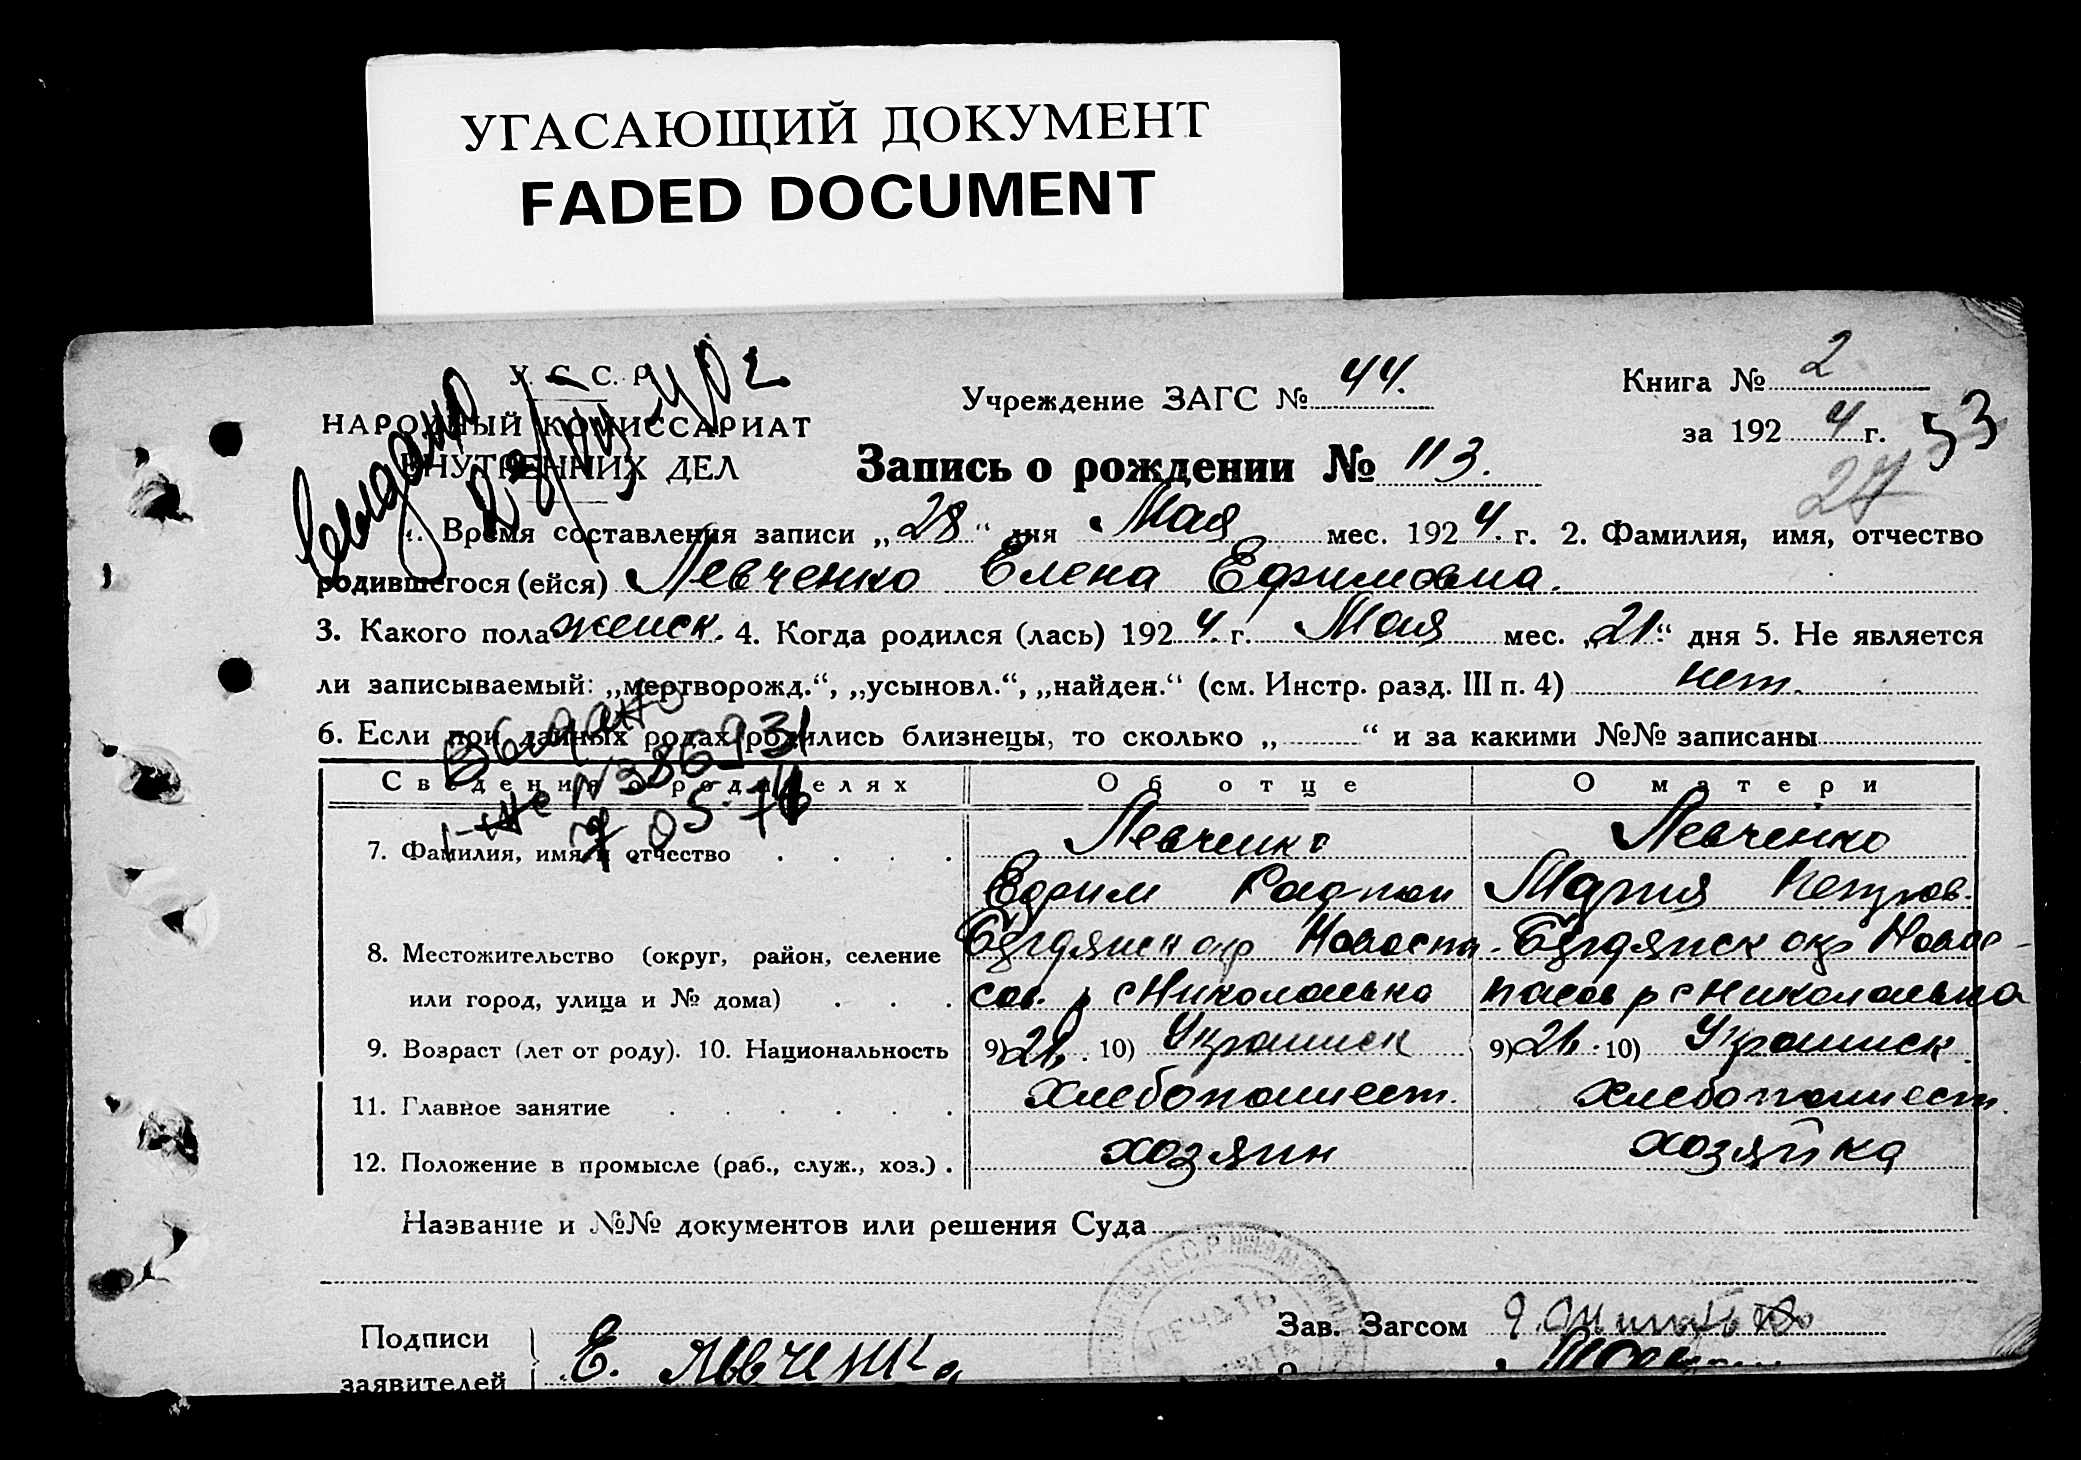 УГАСАЮЩИЙ ДОКУМЕНТ
FADED DOCUMENT
У. С. С. Р.
НАРОДНЫЙ КОМИССАРИАТ
ВНУТРЕННИХ ДЕЛ
Учреждение ЗАГС № 44.
Книга № 2
за 1924 г.
53
27
Запись о рождении № 113.
1. Время составления записи „28“ дня Мая мес. 1924 г. 2. Фамилия, имя, отчество
родившегося (ейся) Левченко Елена Ефимовна.
3. Какого пола женск. 4. Когда родился (лась) 1924 г. Мая мес. „21“ дня 5. Не является
ли записываемый: „мертворожд.“, „усыновл.“, „найден.“ (см. Инстр. разд. III п. 4) нет.
6. Если при данных родах родились близнецы, то сколько „ “ и за какими №№ записаны
Выдано
№ 386931
Сведения о родителях Об отце О матери
7. Фамилия, имя и отчество Левченко Левченко
Ефим Родион Мария Петров.
8. Местожительство (округ, район, селение Бердянск окр Новоспа- Бердянск окр Новос-
или город, улица и № дома) сов. р с Николаевка пасов р с Николаевка
9. Возраст (лет от роду). 10. Национальность 9) 26. 10) Украинск 9) 26. 10) Украинск
11. Главное занятие Хлебопашест. Хлебопашест.
12. Положение в промысле (раб., служ., хоз.). хозяин хозяйка
Название и №№ документов или решения Суда
ПЕЧАТЬ
Подписи
заявителей
Е. Левченко
Зав. Загсом